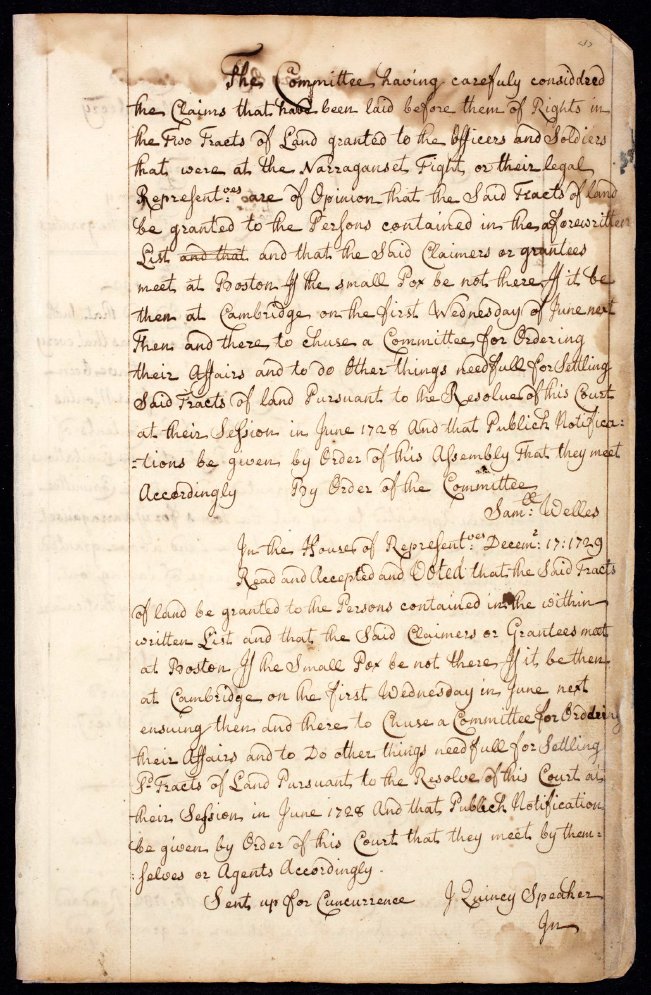 The Committee having carefuly considdred
the Claims that have been laid before them of Rights in
the Two Tracts of Land granted to the Officers and Soldiers
that were at the Narraganset Fight or their legal
Represent:ves are of Opinion that the Said Tracts of land
be granted to the Persons contained in the aforewritten
List and that and that the Said Claimers or grantees
meet at Boston If the small Pox be not there If it be
then at Cambridge on the first Wednesday of June next
Then and there to chuse a Committee for Ordering
their Affairs and to do Other things needfull for Settling
Said Tracts of land Pursuant to the Resolves of this Court
at their Session in June 1728 And that Publick Notifica:
:tions be given by Order of this Assembly That they meet
Accordingly By Order of the Committee
Samll: Welles
In the House of Represent:ves Decemr: 17: 1729
Read and Accepted and Voted that the Said Tracts
of land be granted to the Persons contained in the within
written List and that the Said Claimers or Grantees meet
at Boston If the Small Pox be not there If it be then
at Cambridge on the first Wednesday in June next
ensuing then and there to Chuse a Committee for Ordering
their Affairs and to Do other things needfull for Settling
Sd Tracts of Land Pursuant to the Resolve of this Court at
their Session in June 1728 And that Publick Notification
be given by Order of this Court that they meet by them=
:selves or Agents Accordingly.
Sent up for Cuncurrence J Quincy Speaker
In